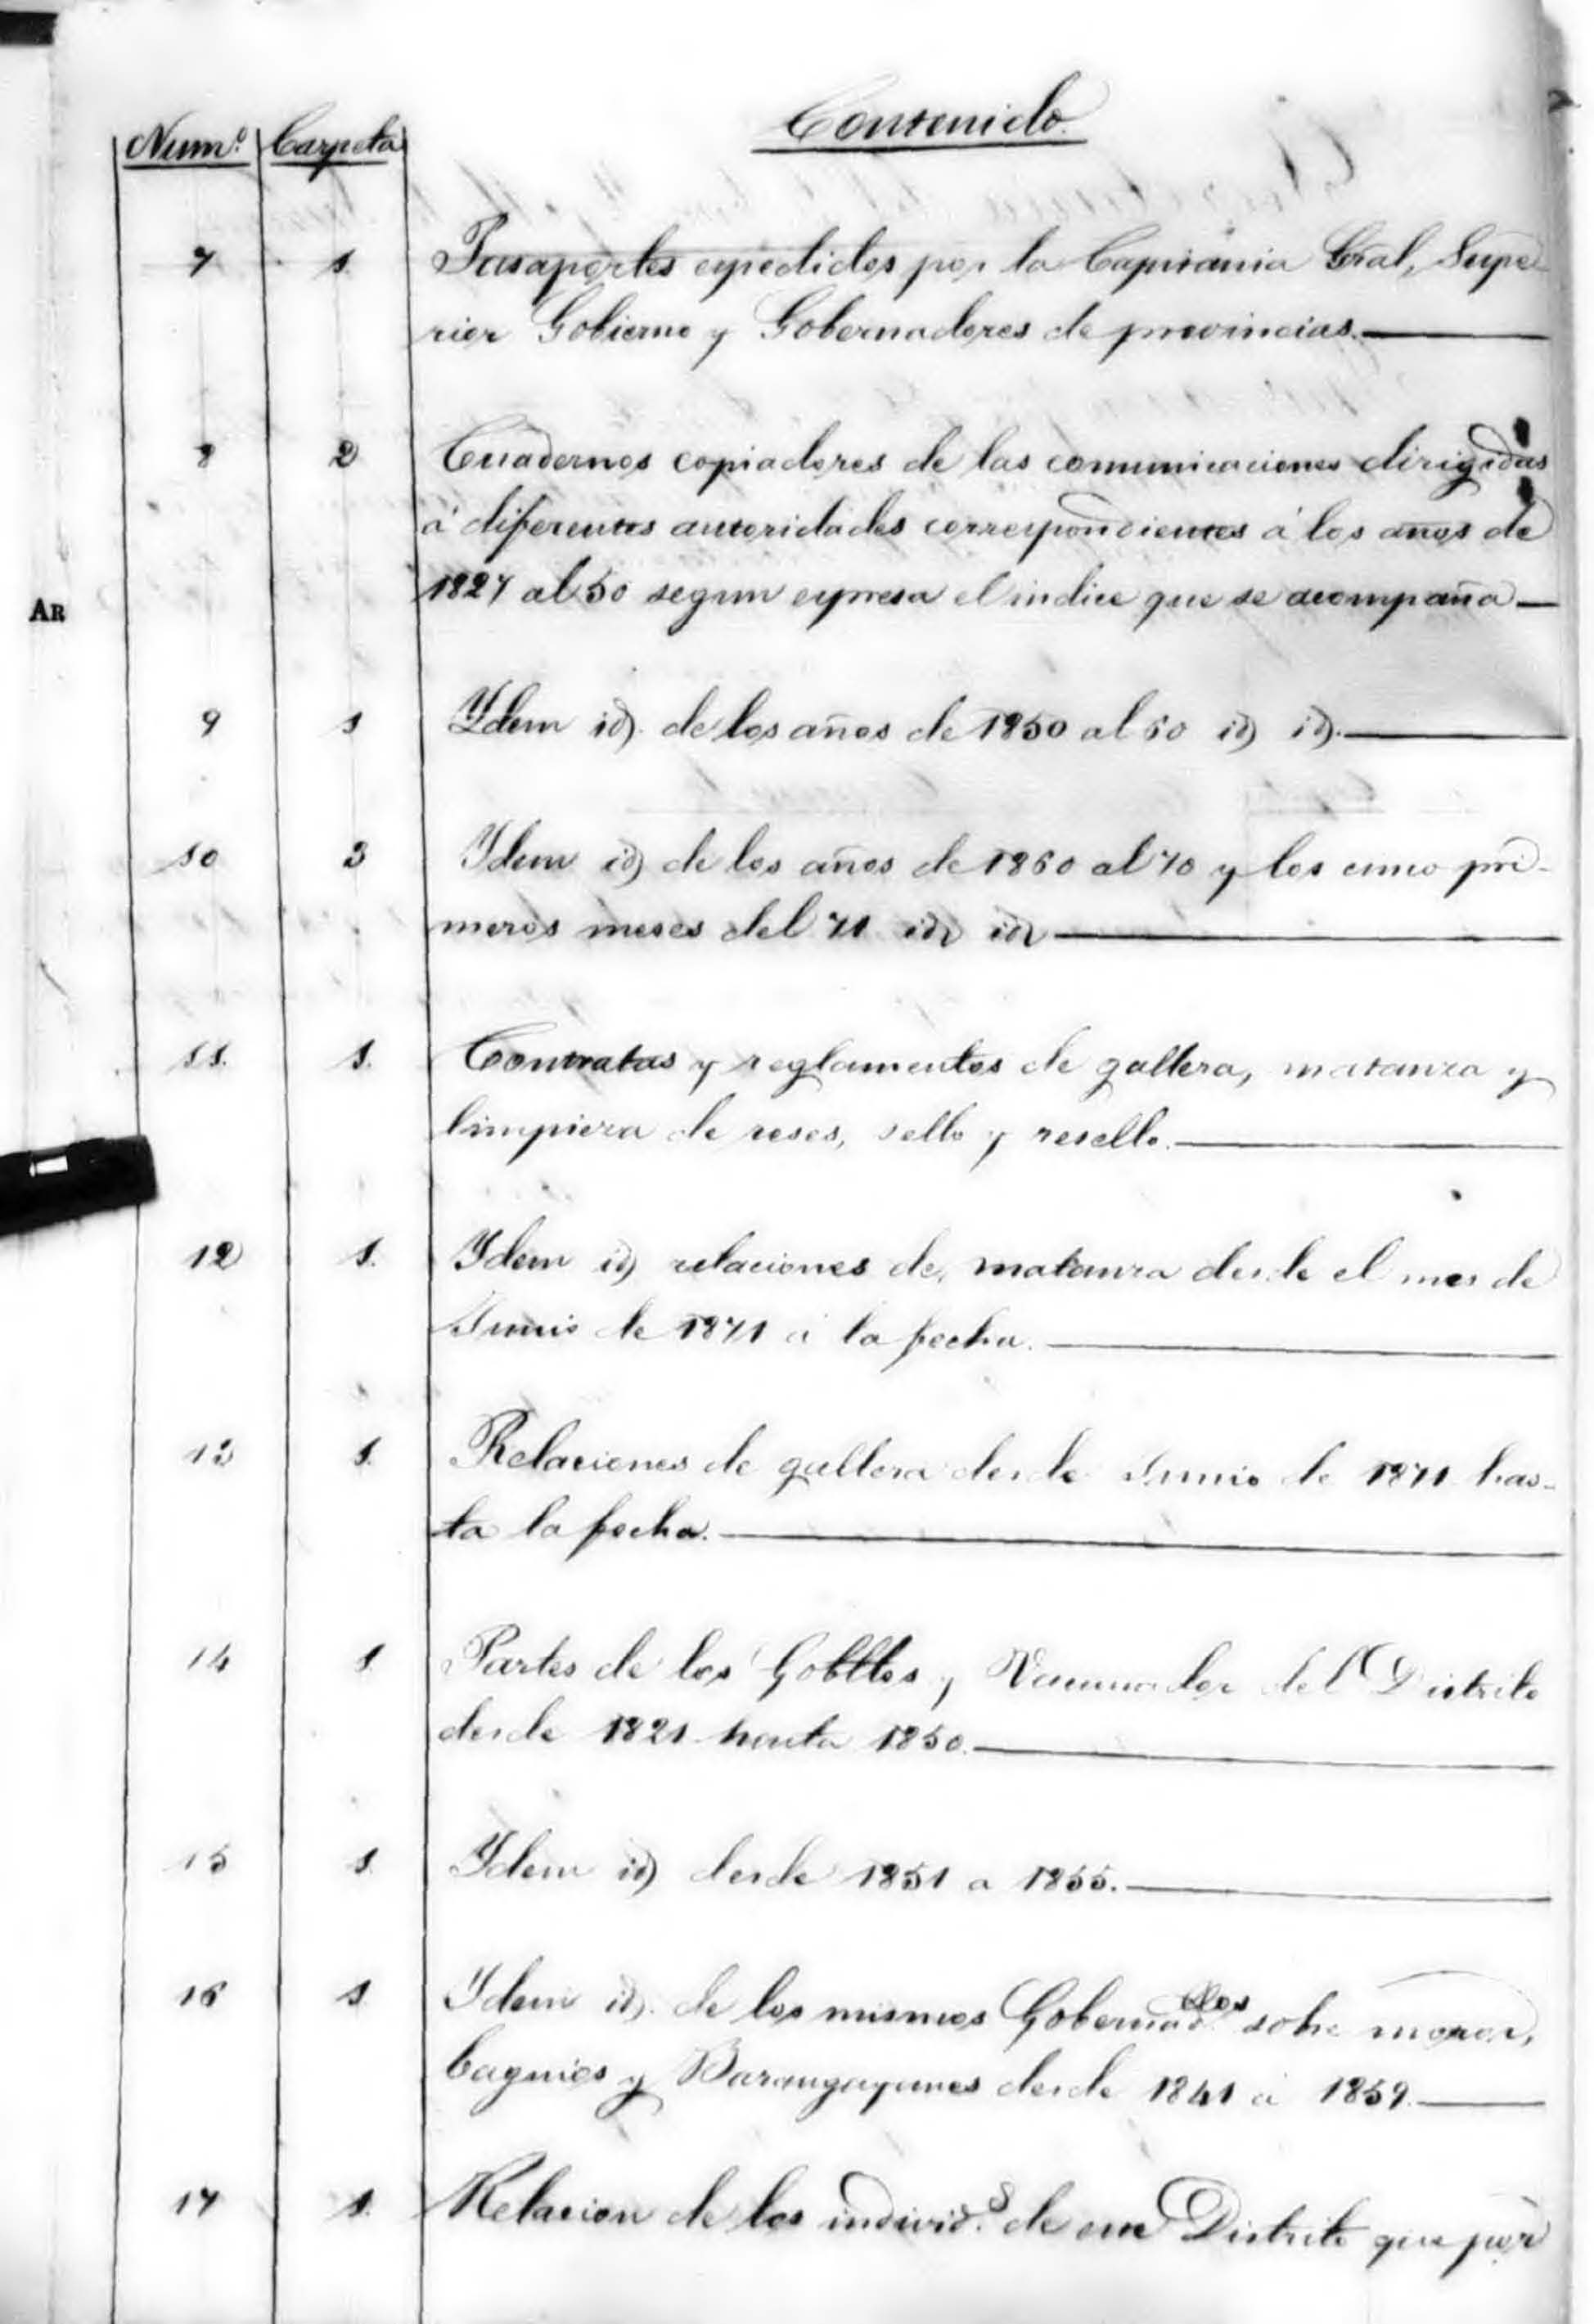 Contenido.
Num.º Carpeta
7 1 Pasaportes expedidos por la Capitania Gral, Supe-
rior Gobierno y Gobernadores de provincias.
8 2 Cuadernos copiadores de las comunicaciones dirigidas
á diferentes autoridades correspondientes á los años de
1827 al 50 segun expresa el indice que se acompaña
AR
9 1 Ydem id. de los años de 1850 al 60 id id.
10 3 Ydem id de los años de 1860 al 70 y los cinco pri-
meros meses del 71 id id
11. 1. Contratas y reglamentos de gallera, matanza y
limpieza de reses, sello y resello.
12 1. Ydem id relaciones de matanza desde el mes de
Junio de 1871 á la fecha.
13 1. Relaciones de gallera desde Junio de 1871 has-
ta la fecha.
14 1 Partes de los Gobllos y Vacunador del Distrito
desde 1821 hasta 1850.
15 1. Ydem id desde 1851 a 1855.
16 1 Ydem id. de los mismos Gobernadllos sobre moros,
baguios y Barangayanes desde 1841 á 1859.
17 1. Relacion de los individ.s de ese Distrito que por